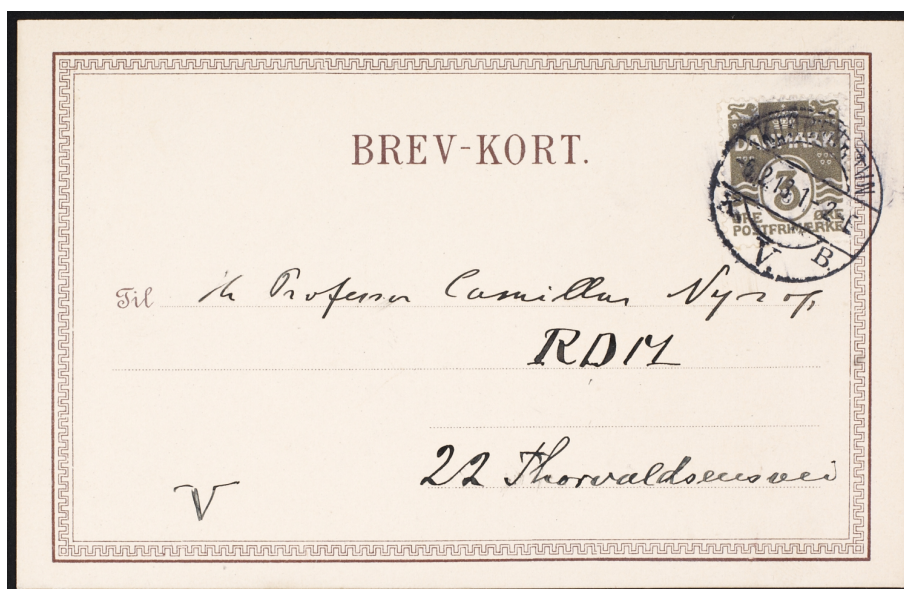 BREV-KORT.
DANMARK
3
ØRE ØRE
POSTFRIMÆRKE
KJØBENHAVN
6.2.13. 1-2-E
K.
V. B.
Til Hr Professor Camillus Nyrop
RDM
22 Thorvaldsensvei
V